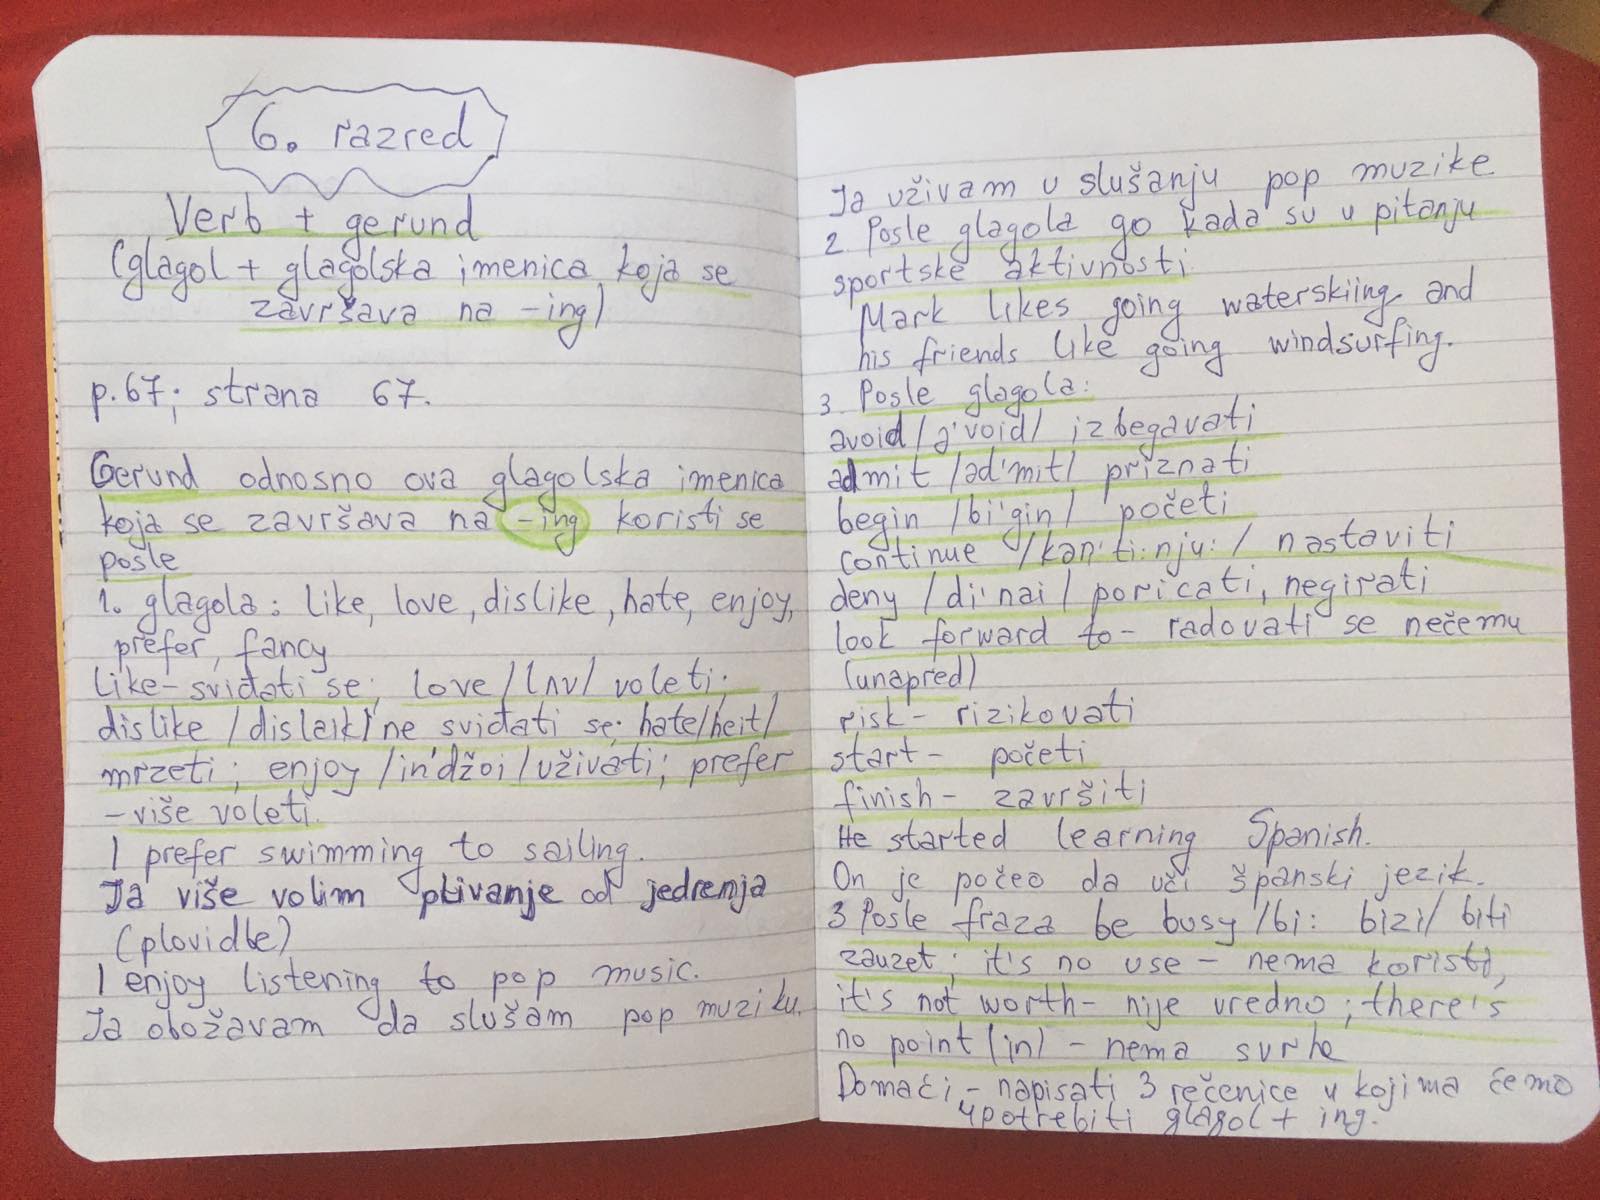 6. razred
Verb + gerund
(glagol + glagolska imenica koja se
završava na -ing)
p.67; strana 67.
Gerund odnosno ova glagolska imenica
koja se završava na -ing koristi se
posle
1. glagola: like, love, dislike, hate, enjoy,
prefer, fancy
like- sviđati se; love /lʌv/ voleti;
dislike /dislaik/ ne sviđati se; hate /heit/
mrzeti; enjoy /in'džoi/ uživati; prefer
- više voleti.
I prefer swimming to sailing.
Ja više volim plivanje od jedrenja
(plovidbe)
I enjoy listening to pop music.
Ja obožavam da slušam pop muziku.
Ja uživam u slušanju pop muzike
2. Posle glagola go kada su u pitanju
sportske aktivnosti.
Mark likes going waterskiing and
his friends like going windsurfing.
3. Posle glagola:
avoid /ə'void/ izbegavati
admit /əd'mit/ priznati
begin /bi'gin/ početi
continue /kən'ti:nju:/ nastaviti
deny /di'nai/ poricati, negirati
look forward to- radovati se nečemu
(unapred)
risk- rizikovati
start- početi
finish- završiti
He started learning Spanish.
On je počeo da uči španski jezik.
3 Posle fraza be busy /bi: bizi/ biti
zauzet; it's no use - nema koristi,
it's not worth- nije vredno; there's
no point (in) - nema svrhe
Domaći - napisati 3 rečenice u kojima ćemo
upotrebiti glagol + ing.